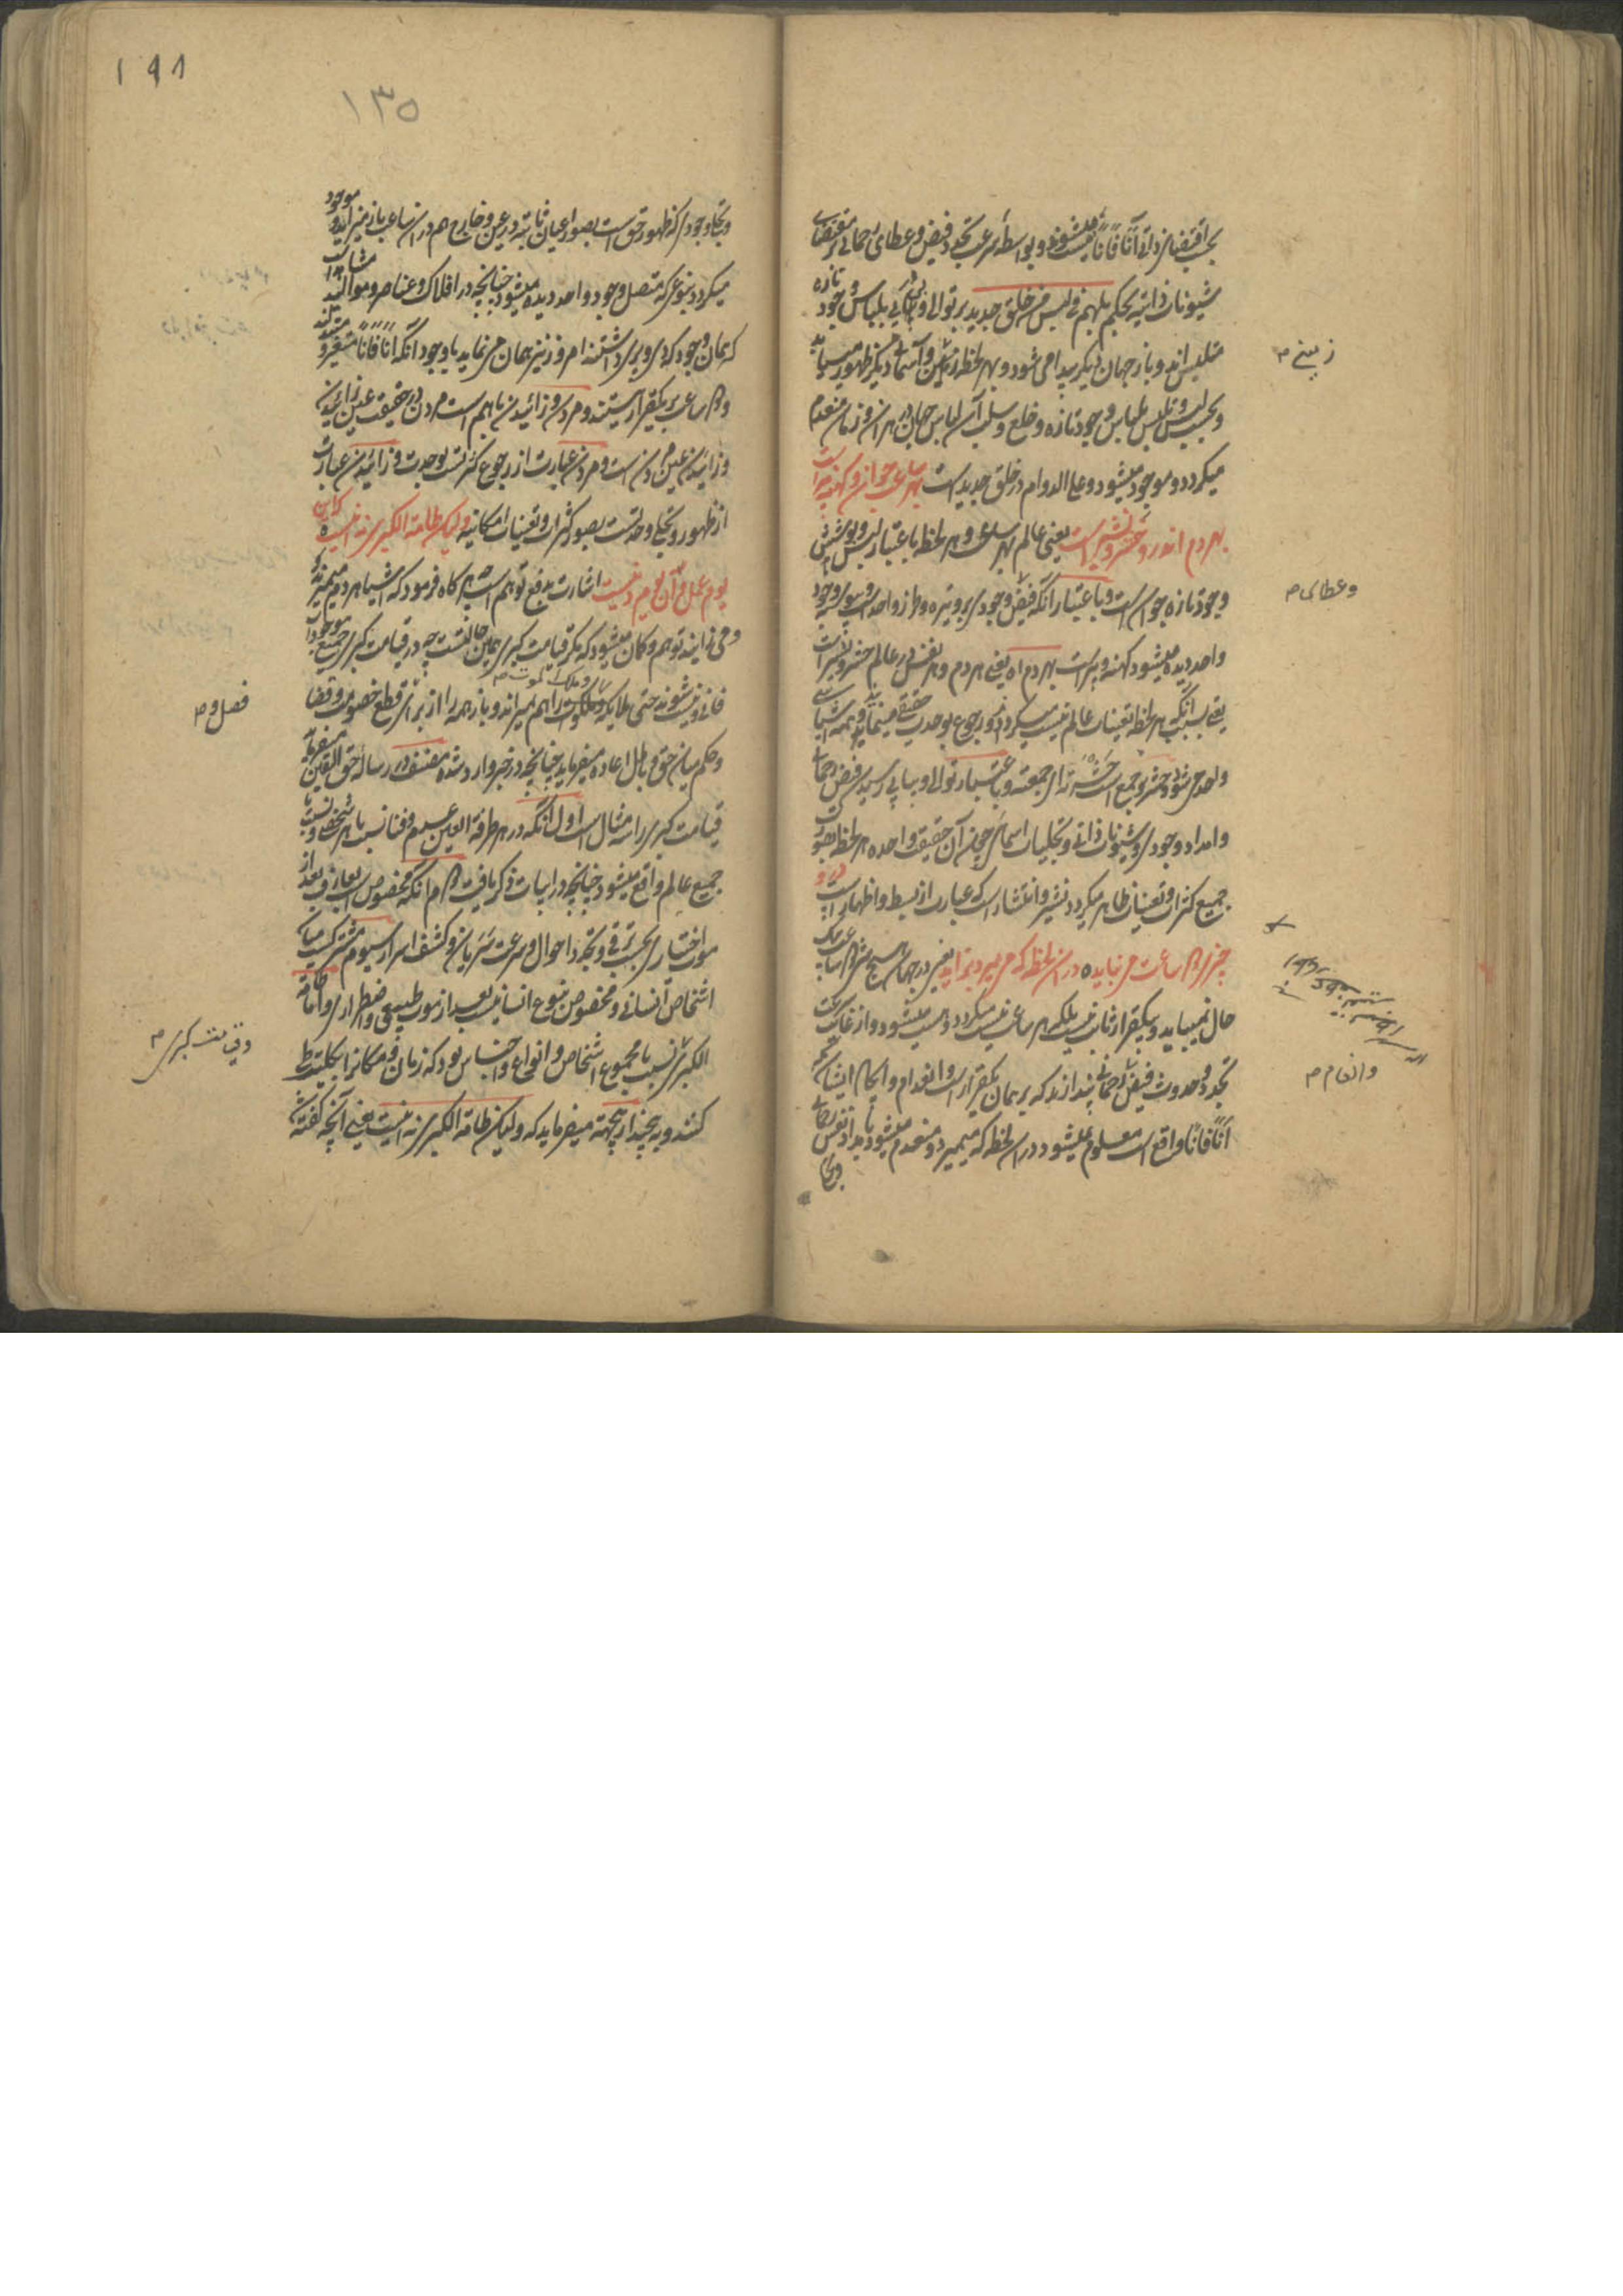 بحسب اقتضای ذاتی آناً فاناً نیست میشوند و بواسطه سرعت تجدد فیض و عطای رحمانی بر مقتضای
شیونات ذاتیه بحکم بل هم فی لبس من خلق جدید بر توالی و پیاپی بلباس وجود تازه
متلبس اند و باز جهان دیگر پیدا می شود و بهر لحظه زمین و آسمانی دیگر ظهور مییابد
زمینی م
و بحسب لبس و تلبس بلباس وجود تازه و خلع و سلب آن لباس جهان در هر آن و زمان منعدم
میگردد و موجود میشود و علی الدوام در خلق جدید است بهر ساعت جوان و کهنه پیر است
بهر دم اندرو حشر و نشیر است یعنی عالم بهر ساعت و هر لحظه باعتبار لبس و پوشش
وجود تازه جوان است و باعتبار آنکه فیض وجودی بر وتیره و طرز واحد است و پیوسته وجود
وعطای م
واحد دیده میشود کهنه و پیر است بهر دم اه یعنی هر دم و هر نفس در عالم حشر و نشر است
یعنی بسبب آنکه هر لحظه تعینات عالم نیست میگردد و رجوع بوحدت حقیقی مینماید و همه اشیا
واحد می شود حشر و جمع است حشرته ای جمعته و باعتبار توالی و پیاپی رسیدن فیض رحمانی
و امداد وجودی و شیونات ذاتی و تجلیات اسمائی چون آن حقیقت واحده هر لحظه بصورت
جمیع کثرات و تعینات ظاهر میگردد نشر و انتشار است که عبارت از بسط و اظهار است درو
چیزی دو ساعت می نپاید در آن لحظه که می میرد بزاید یعنی در جهان هیچ شی دو ساعت بیک
حال نمیپاید و بیکقرار ثابت نیست بلکه هر ساعت نیست میگردد و هست میشود و از غایت سرعت
تجدد و حدوث فیض رحمانی پندارند که بر همان یکقرار است و انعدام و ایجاد ایشان که
وانعام م
آناً فاناً واقع است معلوم نمیشود در آن لحظه که میمیرد و منعدم میشود بامداد نفس رحمانی
وتجلی
۱۹۸
۱۳۵
وتجلی وجودی که ظهور حق است بصور اعیان ثابته در عین و خارج هم در آن ساعت باز میزاید و موجود
میگردد بنوعی که متصل وجود واحد دیده میشود چنانچه در افلاک و عناصر و موالید مشاهده است
که همان وجود که دی و پری داشتند امروز نیز همان می نماید با وجود آنکه آناً فاناً متغیر و متبدل اند
و دو ساعت بر یکقرار نیستند و مردن و زائیدن با هم است مردن در حقیقت عین زائیدن
و زائیدن عین مردن است و مردن عبارت از رجوع کثرتست بوحدت و زائیدن عبارت
از ظهور و تجلی وحدتست بصور کثرات و تعینات امکانیه ولیکن طامة الکبری نه اینست که این
یوم عمل و آن یوم دینست اشارت بدفع توهم است چه هر گاه فرمود که اشیا هر دم میمیرند
و می زایند توهم و گمان میشود که مگر قیامت کبری همین حالتست چه در قیامت کبری جمیع موجودات
فانی و نیست شوند حتی ملایکه و ملک الموت را هم میرانند و باز همه را از برای قطع خصومت و قضا
فصل و م
و حکم میان حق و باطل اعاده میفرماید چنانچه در خبر وارد شده مصنف در رساله حق الیقین میفرماید
قیامت کبری را سه مثال است اول آنکه در هر طرفة العین عدم و فنا نسبت با هر شخصی و نسبت با
جمیع عالم واقع میشود چنانچه در ابیات ذکر یافت دوم آنکه مخصوص است بعارف بعد از
موت اختیاری بحسب ترقی و تجرد احوال و سرعت سریان و کشف اسرار سیوم مشترکست میان
اشخاص انسانی و مخصوص بنوع انسانیست بعد از موت طبیعی و اضطراری و اما طامة
الکبری نسبت با مجموع اشخاص و انواع و اجناس بود که زمان و مکانرا بکلیت طی
وقیامت کبری م
کنند و به چند ازینجهته میفرماید که ولیکن طامة الکبری نه اینست یعنی آنچه گفته شد